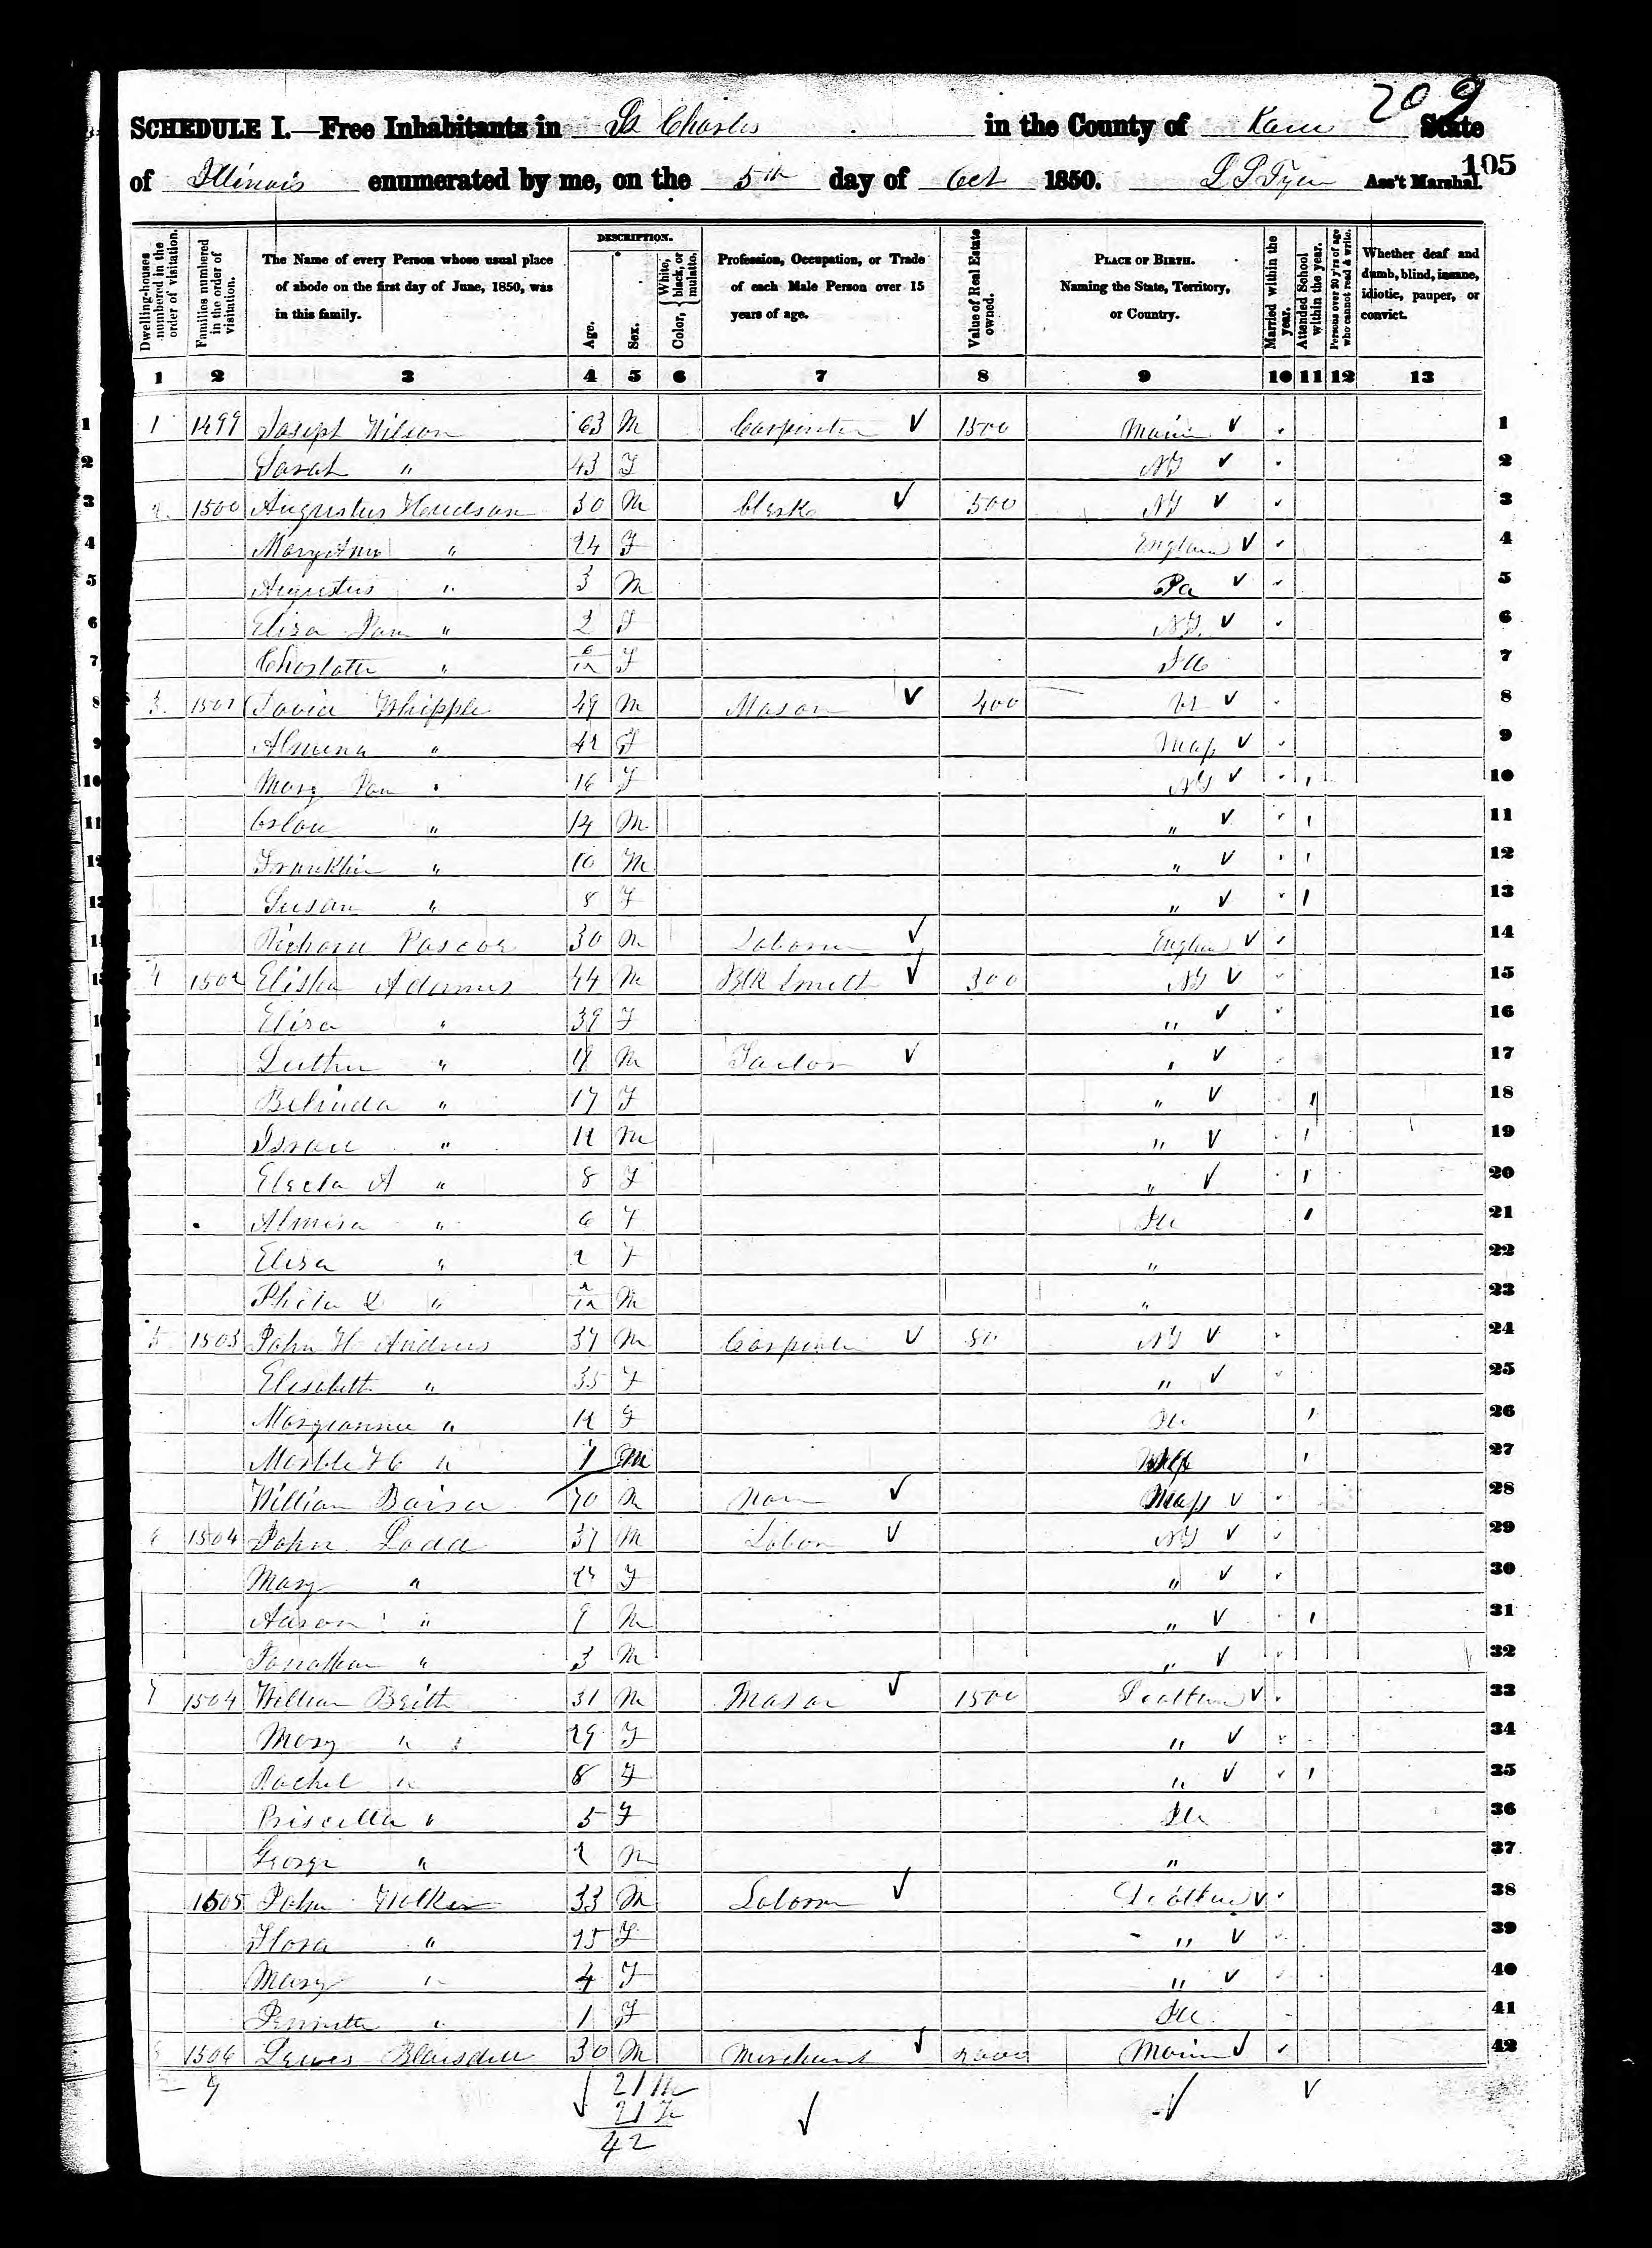 209
SCHEDULE I.—Free Inhabitants in St Charles in the County of Kane State
105
of Illinois enumerated by me, on the 5th day of Oct 1850. Ass't Marshal.
Dwelling-houses numbered in the order of visitation.
Families numbered in the order of visitation.
The Name of every Person whose usual place of abode on the first day of June, 1850, was in this family.
DESCRIPTION.
Age.
Sex.
Color, White, black, or mulatto.
Profession, Occupation, or Trade of each Male Person over 15 years of age.
Value of Real Estate owned.
PLACE OF BIRTH. Naming the State, Territory, or Country.
Married within the year.
Attended School within the year.
Persons over 20 y'rs of age who cannot read & write.
Whether deaf and dumb, blind, insane, idiotic, pauper, or convict.
1 2 3 4 5 6 7 8 9 10 11 12 13
1 1 1499 Joseph Wilson 63 M Carpenter 1500 Maine 1
2 Sarah " 43 F NY 2
3 2 1500 Augustus Hudson 30 M Clerk 500 NY 3
4 " 24 F England 4
5 Augustus " 3 M Pa 5
6 Eliza Jane " 2 F NY 6
7 Charlotte " 6/12 F Ill 7
8 3 1501 David Whipple 49 M Mason 400 Vt 8
9 Almena " 42 F Mass 9
10 Mary Jane " 16 F NY 10
11 " 14 M " 11
12 Franklin " 10 M " 12
13 Susan " 8 F " 13
14 Richard Pascoe 30 M Laborer England 14
15 4 1502 Elisha Adams 44 M Blk Smith 300 NY 15
16 Eliza " 39 F " 16
17 Luther " M Tailor " 17
18 Belinda " 17 F " 18
19 Israel " M " 19
20 Electa A " 8 F " 20
21 Almira " 6 F Ill 21
22 Eliza " 2 F " 22
23 " 2/12 M " 23
24 5 1503 John H Andrus 37 M Carpenter NY 24
25 Elisabeth " 35 F " 25
26 " F Ill 26
27 " M 27
28 William 70 M None Mass 28
29 6 1504 John Ladd 37 M Labor NY 29
30 Mary " F " 30
31 Aaron " 9 M " 31
32 Jonathan " 3 M " 32
33 7 1504 William Beith 31 M Mason 1500 Scotland 33
34 Mary " 29 F " 34
35 Rachel " 8 F " 35
36 Priscilla " 5 F Ill 36
37 George " 2 M " 37
38 1505 John 33 M Laborer Scotland 38
39 Flora " F " 39
40 Mary " 4 F " 40
41 " 1 F Ill 41
42 8 1506 Lewes Blaisdell 30 M Merchant 2000 Maine 42
9 21 M
21 F
42